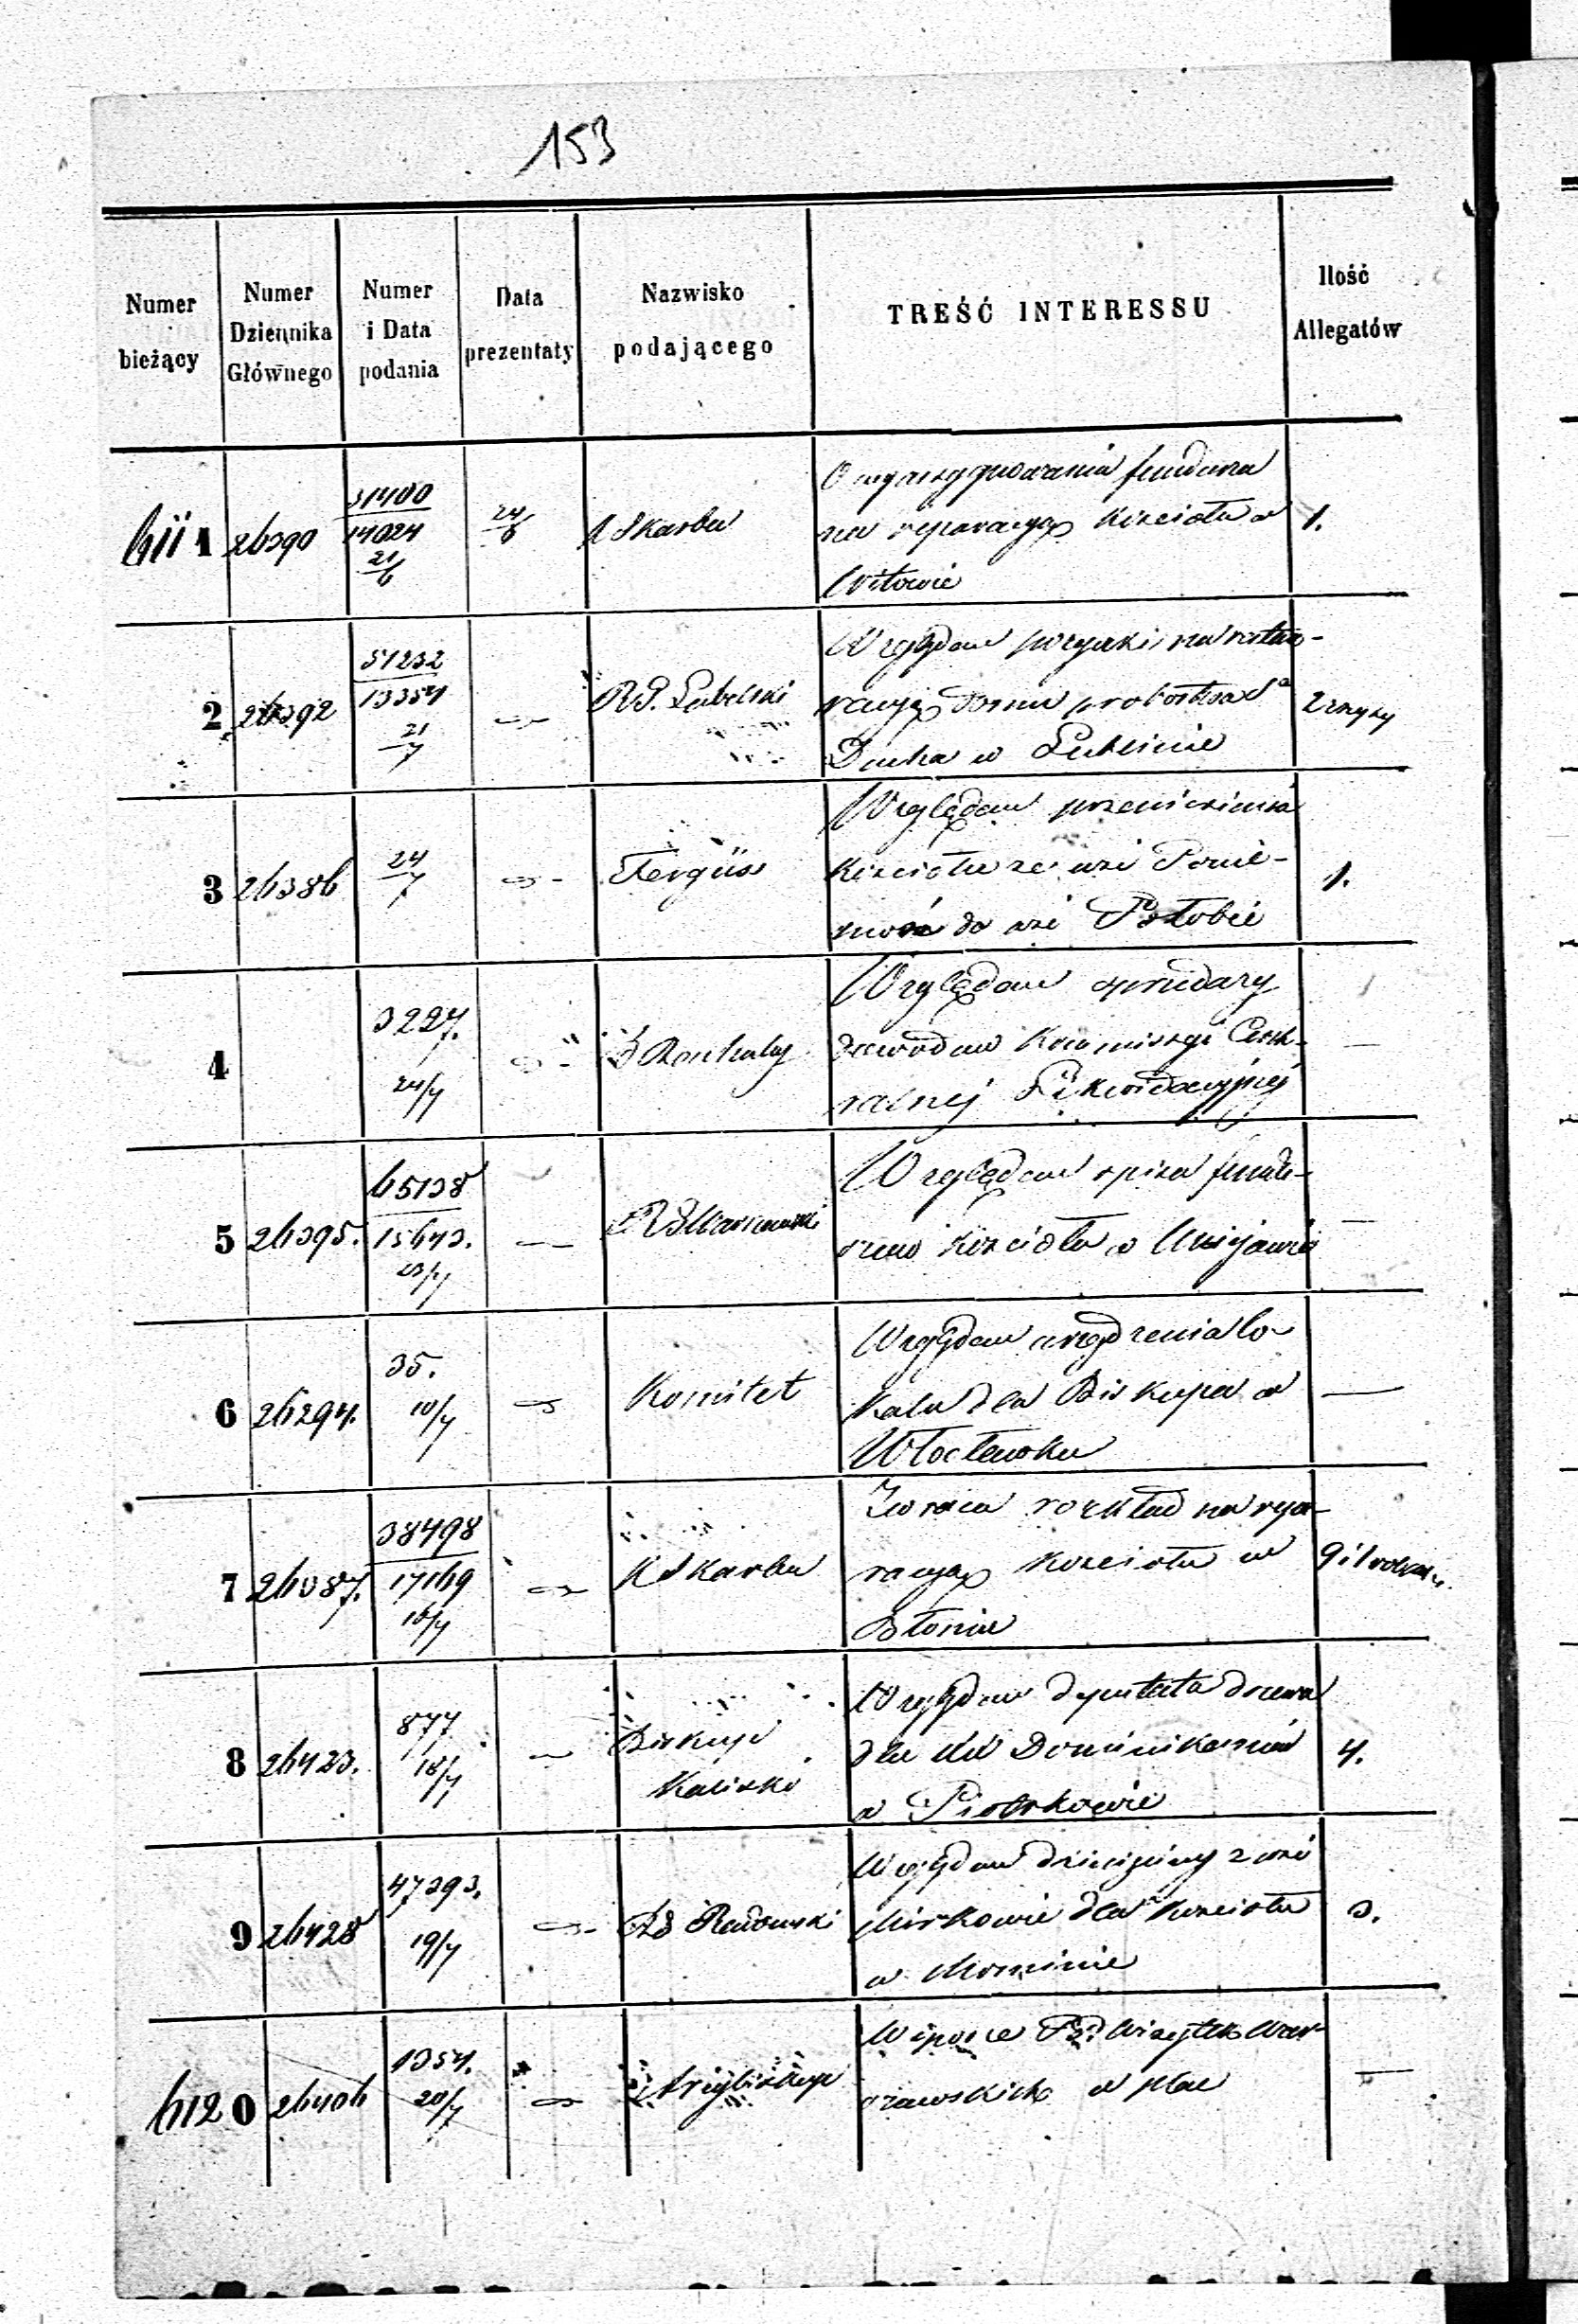 153
Numer bieżący
Numer Dziennika Głównego
Numer i Data podania
Data prezentaty
Nazwisko podającego
TREŚĆ INTERESSU
Ilość Allegatów
611 1
26390
31400
14024
21/6
24/6
K Skarbu
O wyasygnowania fundusza
na reparacyą Kościoła w
Witowie
1.
2
26392
51232
13354
21/7
RG. Lubelski
Względem
racyę domu probostwa Sº
Ducha w Lublinie
3
26386
24/7
Ferguss
Względem przeniesienia
Kościoła ze wsi Ponie-
moń do wsi Połobie
1.
4
3227.
24/7
Względem sprzedaży
dowodów Kommissyi Cent-
ralnej Likwidacyjnej
—
5
26395.
65138
15643.
23/7
RG Warszawski
Względem spisu fundu-
szów Kościoła w Uniejowie
—
6
26294.
35.
10/7
Komitet
Względem urządzenia lo-
kalu dla Biskupa w
Włocławku
—
7
26387.
38498
17169
16/7
K Skarbu
Zwraca rozkład na repa-
racyą Kościoła w
Błoniu
8
26423.
877
18/7
Biskup
Kaliski
Względem deputatu drzewa
dla XX Dominikanów
w Piotrkowie
4.
9
26428
47393.
19/7
RG Radomski
Względem dziesięciny z wsi
Mirkowie dla Kościoła
w Mominie
3.
612 0
26406
1354.
20/7
Arcybiskup
W sporze PP. Wizytek War-
szawskich o plac
—